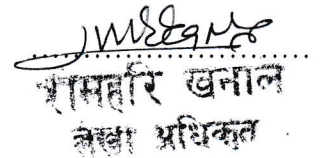 रामहरि खनाल
लेखा अधिकृत